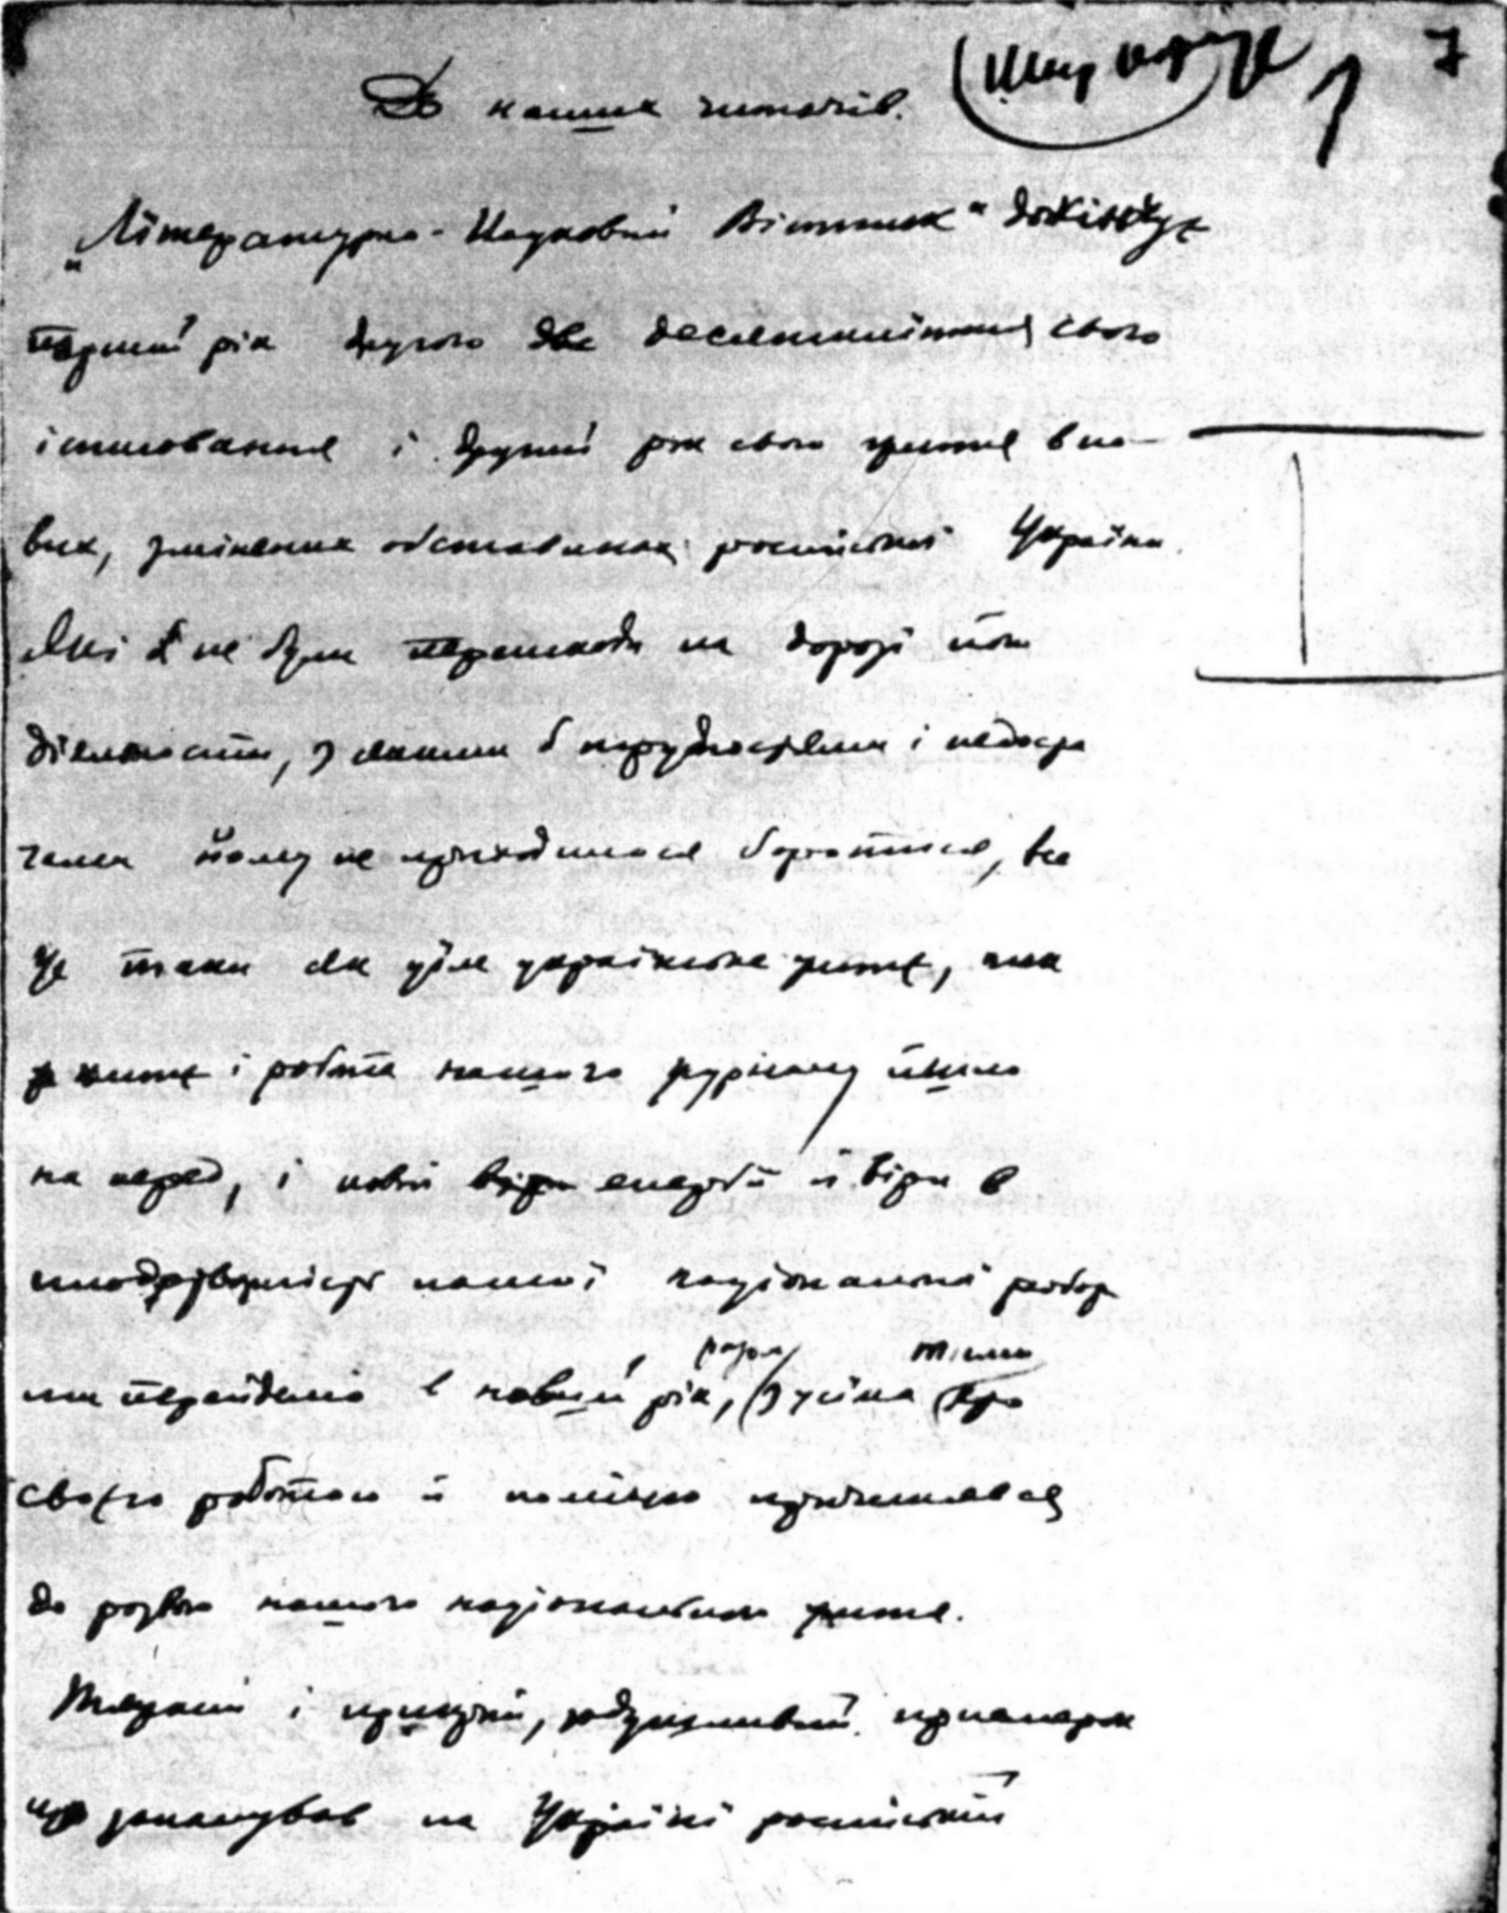 До наших читачів.
7
„Літературно-Науковий Вістник" докінчує
перший рік другого десятилітя свого
істновання і другий рік свого житя в но-
вих, змінених обставинах російської України.
Які б не були перешкоди на дорозі його
діяльности, з якими б трудностями і недоста
чами йому не приходилося боротися, все
це таки як ціле українське житє, так
житє і робота нашого журналу йшло
на перед, і повні енергії й віри в
плодотворність нашої національної роботи
ми перейдемо в новий рік, разом з усіма тими хто
своєю роботою й поміччю причинявся
до розвою нашого національного житя.
Тяжкий і прикрий, задушливий присмерк
що запанував на Україні російській